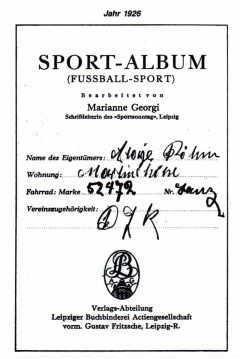 Jahr 1926
SPORT-ALBUM
(FUSSBALL-SPORT)
Bearbeitet von
Marianne Georgi
Schriftleiterin des »Sportsonntag«, Leipzig
Name des Eigentümers:
Wohnung:
Fahrrad: Marke 52472 Nr. Lanz
Vereinszugehörigkeit:
DJK
LB
Verlags-Abteilung
Leipziger Buchbinderei Actiengesellschaft
vorm. Gustav Fritzsche, Leipzig-R.